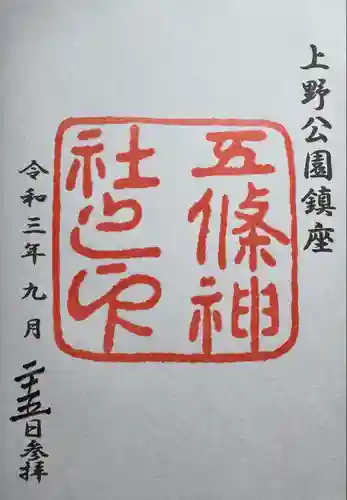 上野公園鎮座
五條神
社之印
令和三年九月
二十五日参拝